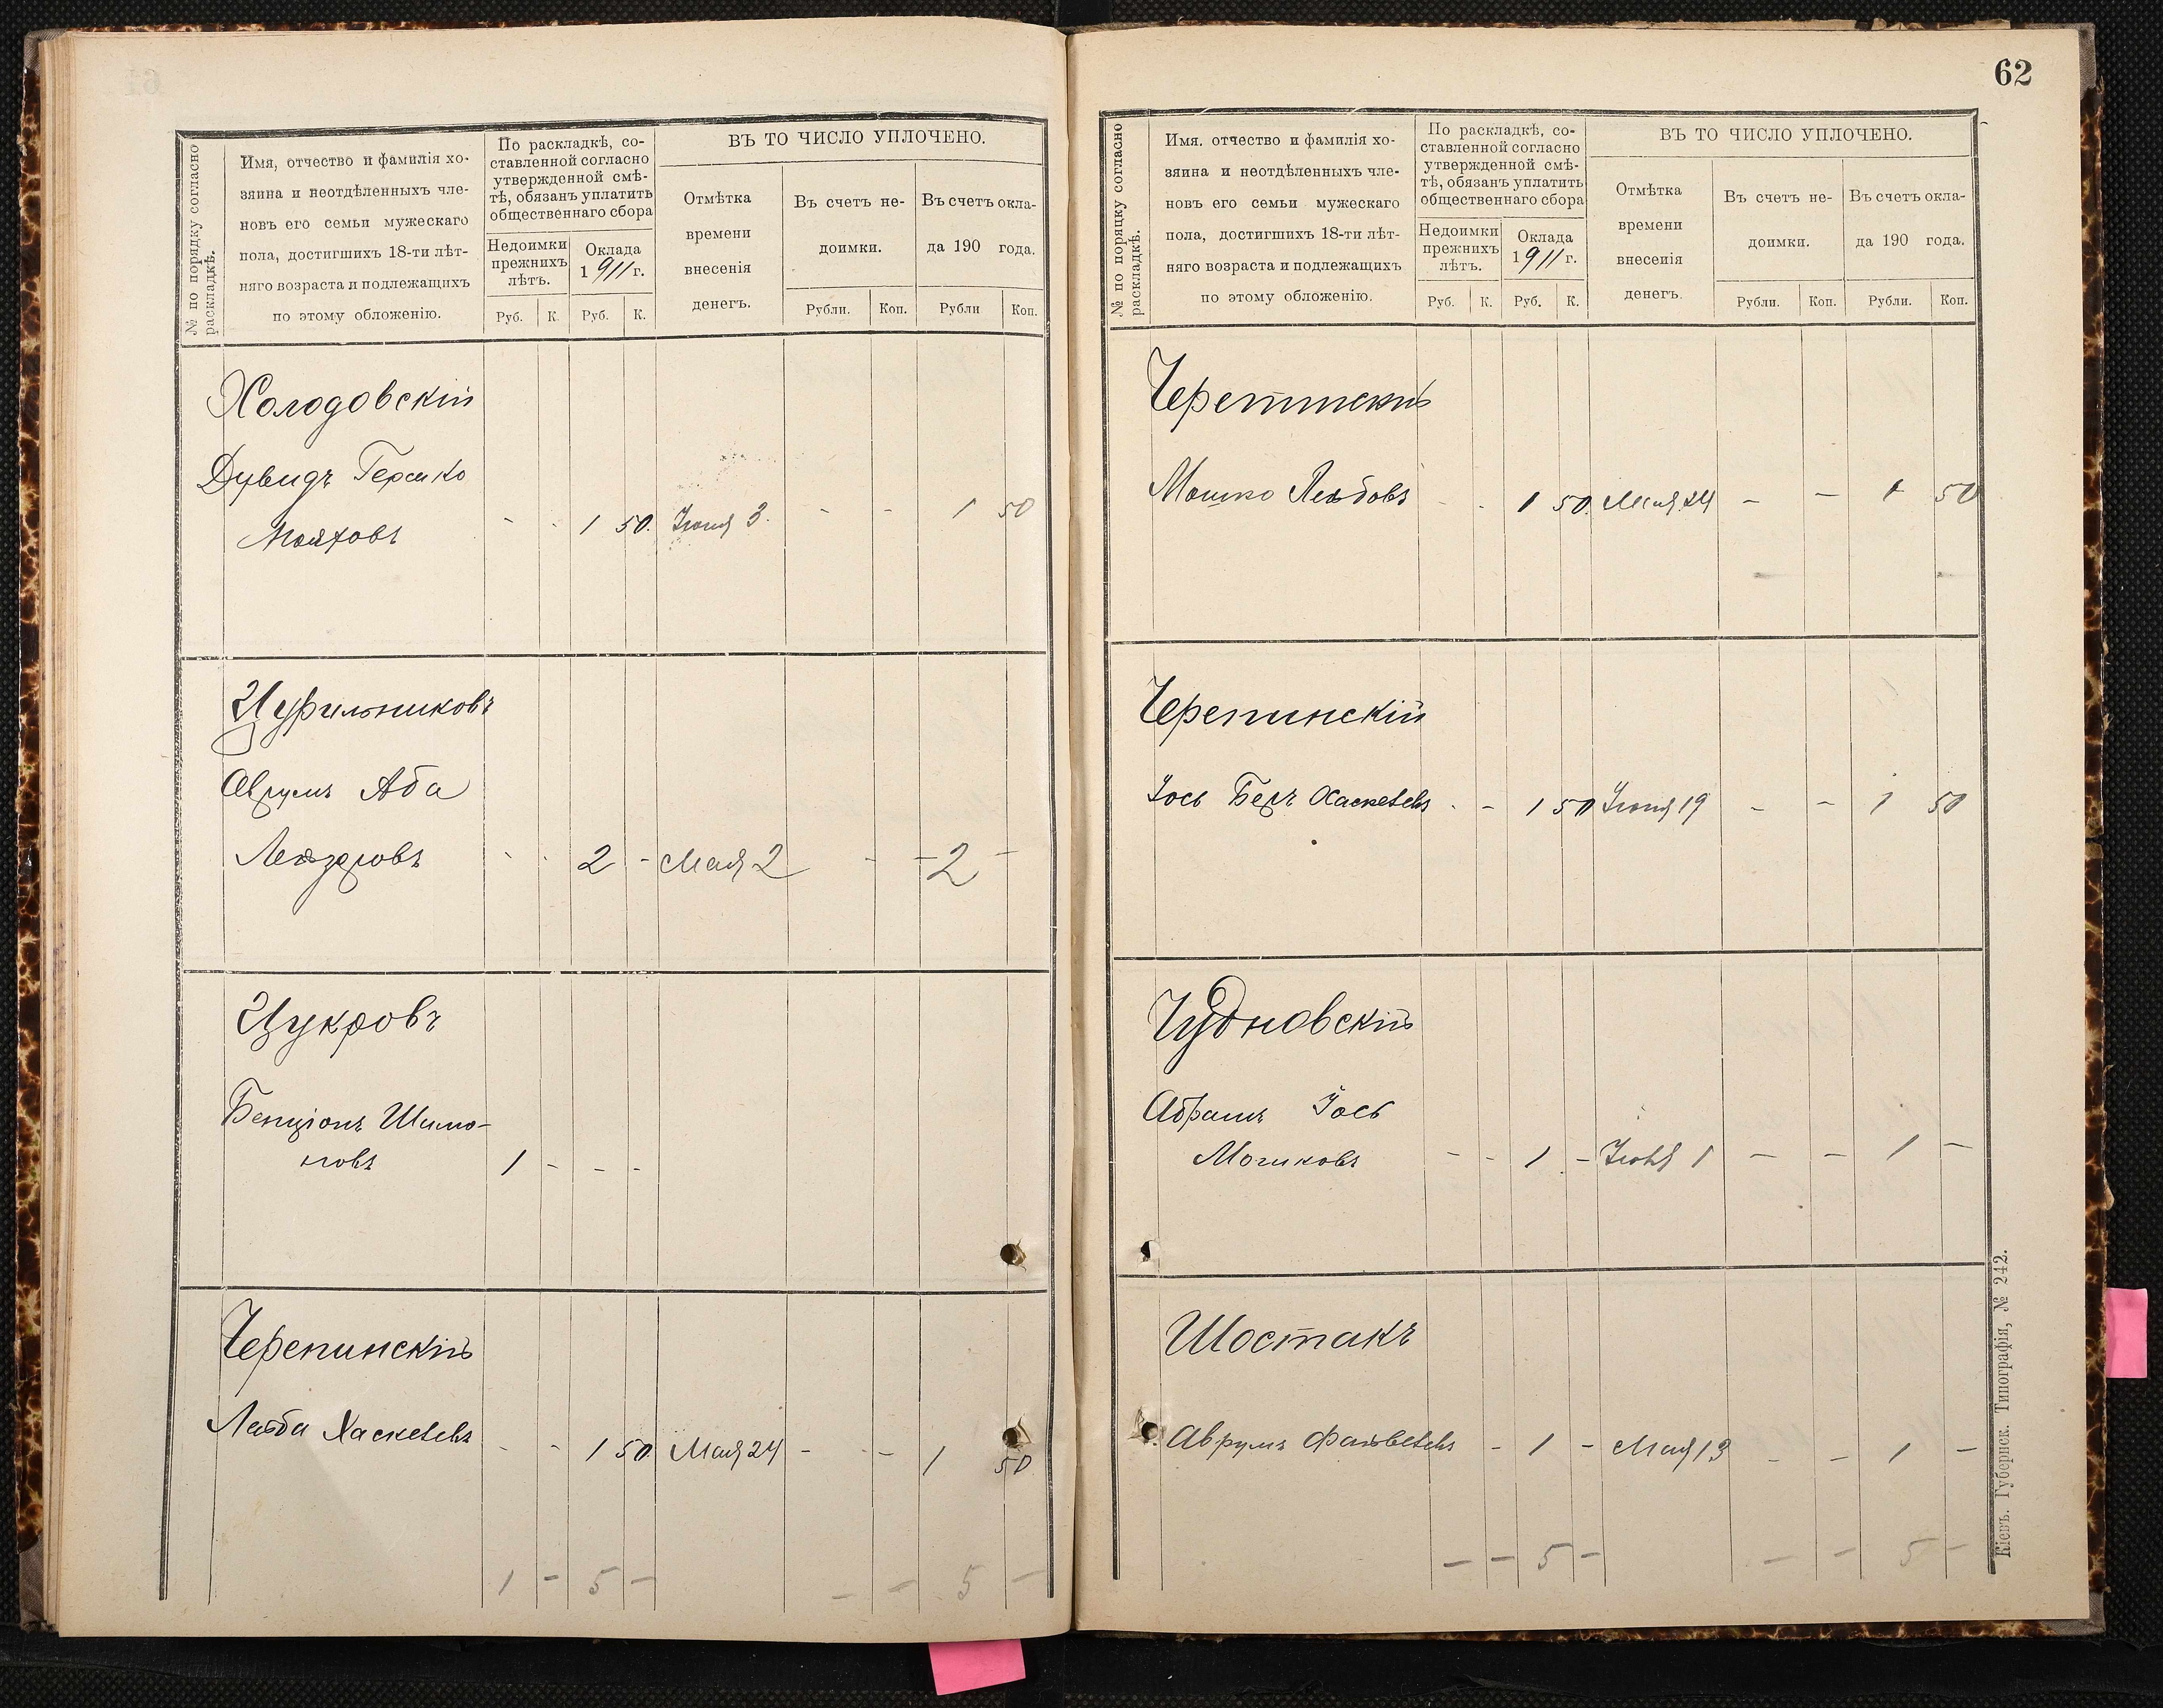 № по порядку согласно
раскладкѣ.
Имя, отчество и фамилія хо-
зяина и неотдѣленныхъ чле-
новъ его семьи мужескаго
пола, достигшихъ 18-ти лѣт-
няго возраста и подлежащихъ
по этому обложенію.
По раскладкѣ, со-
ставленной согласно
утвержденной смѣ-
тѣ, обязанъ уплатить
общественнаго сбора
Недоимки
прежнихъ
лѣтъ.
Оклада
1911 г.
Руб. К. Руб. К.
ВЪ ТО ЧИСЛО УПЛОЧЕНО.
Отмѣтка
времени
внесенія
денегъ.
Въ счетъ не-
доимки.
Въ счетъ окла-
да 190 года.
Рубли. Коп. Рубли Коп.
Холодовскій
Дувидъ Гершко
- - 1 50. Іюня 3. - - 1 50
Цурильниковъ
Аврумъ Аба
Лейзеровъ - - 2 - Мая 2 - - 2 -
Цукровъ
Бенціонъ Шимо-
новъ 1 - - -
Черепинскій
Лейба Хаскелевъ - - 1 50 Мая 24 - - 1 50
1 - 5 - - - 5 -
62
№ по порядку согласно
раскладкѣ.
Имя. отчество и фамилія хо-
зяина и неотдѣленныхъ чле-
новъ его семьи мужескаго
пола, достигшихъ 18-ти лѣт-
няго возраста и подлежащихъ
по этому обложенію.
По раскладкѣ, со-
ставленной согласно
утвержденной смѣ-
тѣ, обязанъ уплатить
общественнаго сбора
Недоимки
прежнихъ
лѣтъ.
Оклада
1911 г.
Руб. К. Руб. К.
ВЪ ТО ЧИСЛО УПЛОЧЕНО.
Отмѣтка
времени
внесенія
денегъ.
Въ счетъ не-
доимки.
Въ счетъ окла-
да 190 года.
Рубли. Коп. Рубли. Коп.
Черепинскій
Мошко Лейбовъ - - 1 50 Мая 24 - - 1 50
Черепинскій
Іось Беръ Хаскелевъ - - 1 50 Іюня 19 - - 1 50
Чудновскій
Абрамъ Іось
Мошковъ - - 1 - Іюня 1 - - 1 -
Шостакъ
Аврумъ Файвелевъ - 1 - Мая 13 - - 1 -
- - 5 - - - 5 -
Кіевъ. Губернск. Типографія, № 242.